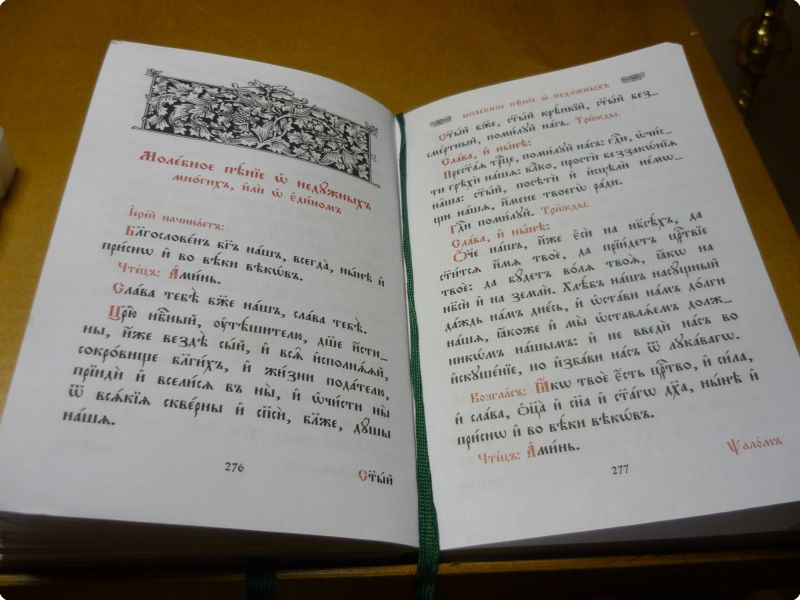 Моле́бное пѣ́нїе ѡ҆ недꙋ́жныхъ
мно́гихъ, и҆лѝ ѡ҆ є҆ди́номъ
І҆ере́й начина́етъ:
Бл҃гослове́нъ бг҃ъ на́шъ, всегда̀, ны́нѣ и҆
при́снѡ и҆ во вѣ́ки вѣкѡ́въ.
Чте́цъ: А҆ми́нь.
Сла́ва тебѣ̀ бж҃е на́шъ, сла́ва тебѣ̀.
Цр҃ю̀ нбⷭ҇ный, ᲂу҆тѣ́шителю, дш҃е и҆́сти_
ны, и҆́же вездѣ̀ сы́й, и҆ всѧ̑ и҆сполнѧ́ѧй,
сокро́вище бл҃ги́хъ, и҆ жи́зни пода́телю,
прїидѝ и҆ всели́сѧ въ ны̀, и҆ ѡ҆чи́сти ны̀
ѿ всѧ́кїѧ скве́рны и҆ сп҃сѝ, бл҃же, дꙋ́шы
на́шѧ.
276
Ст҃ы́й
моле́бное пѣ́нїе ѡ҆ недꙋ́жныхъ
Ст҃ы́й бж҃е, ст҃ы́й крѣ́пкїй, ст҃ы́й без_
сме́ртный, поми́лꙋй на́съ. Три́жды.
Сла́ва, и҆ ны́нѣ:
Прест҃а́ѧ трⷪ҇це, поми́лꙋй на́съ: гдⷭ҇и, ѡ҆чи́с_
ти грѣхѝ на́шѧ: влⷣко, простѝ беззакѡ́нїѧ
на̑ша: ст҃ы́й, посѣтѝ и҆ и҆сцѣлѝ не́мѡ_
щи на́шѧ, и҆́мене твоегѡ̀ ра́ди.
Гдⷭ҇и поми́лꙋй. Три́жды.
Сла́ва, и҆ ны́нѣ:
Ѻ҆́ч҃е на́шъ, и҆́же є҆сѝ на нб҃сѣ́хъ, да
ст҃и́тсѧ и҆́мѧ твоѐ, да прїи́детъ црⷭ҇твїе
твоѐ: да бꙋ́детъ во́лѧ твоѧ̀, ꙗ҆́кѡ на
нб҃сѝ и҆ на землѝ. Хлѣ́бъ на́шъ насꙋ́щный
да́ждь на́мъ дне́сь, и҆ ѡ҆ста́ви на́мъ до́лги
на́шѧ, ꙗ҆́коже и҆ мы̀ ѡ҆ставлѧ́емъ долж_
никѡ́мъ на́шымъ: и҆ не введѝ на́съ во
и҆скꙋше́нїе, но и҆зба́ви на́съ ѿ лꙋка́вагѡ.
Возгла́съ: Ꙗ҆́кѡ твоѐ є҆́сть црⷭ҇тво, и҆ си́ла,
и҆ сла́ва, ѻ҆ц҃а̀ и҆ сн҃а и҆ ст҃а́гѡ дх҃а, ны́нѣ и҆
при́снѡ и҆ во вѣ́ки вѣкѡ́въ.
Чте́цъ: А҆ми́нь.
277
Ѱало́мъ